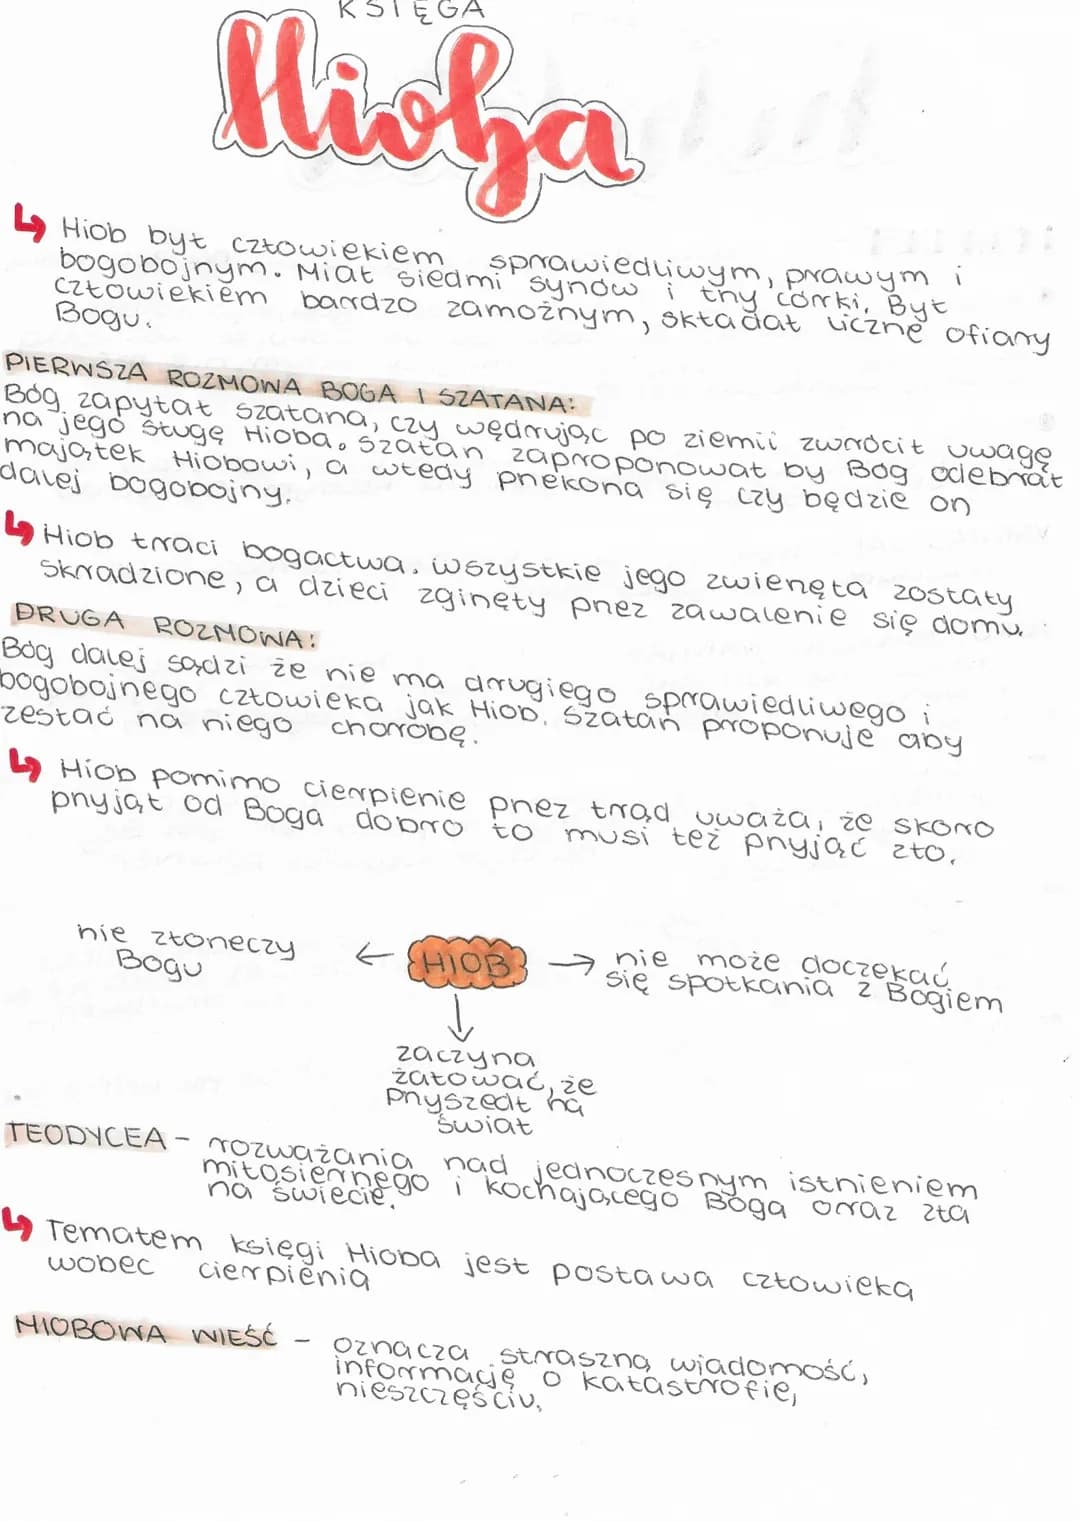 KSIĘGA
Hioba
↳ Hiob był człowiekiem sprawiedliwym, prawym i
bogobojnym. Miał siedmi synów i trzy córki. Był
człowiekiem bardzo zamożnym, składał liczne ofiary
Bogu.
PIERWSZA ROZMOWA BOGA I SZATANA:
Bóg zapytał szatana, czy wędrując po ziemii zwrócił uwagę
na jego sługę Hioba. Szatan zaproponował by Bóg odebrał
majątek Hiobowi, a wtedy przekona się czy będzie on
dalej bogobojny.
↳ Hiob traci bogactwa. wszystkie jego zwierzęta zostały
skradzione, a dzieci zginęły przez zawalenie się domu.
DRUGA ROZMOWA:
Bóg dalej sądzi że nie ma drugiego sprawiedliwego i
bogobojnego człowieka jak Hiob. Szatan proponuje aby
zesłać na niego chorobę.
↳ Hiob pomimo cierpienie przez trąd uważa, że skoro
przyjął od Boga dobro to musi też przyjąć zło.
nie złorzeczy
Bogu
← HIOB →
nie może doczekać
się spotkania z Bogiem
↓
zaczyna
żałować, że
przyszedł na
świat
TEODYCEA - rozważania nad jednoczesnym istnieniem
miłosiernego i kochającego Boga oraz zła
na świecie.
↳ Tematem księgi Hioba jest postawa człowieka
wobec cierpienia
HIOBOWA WIEŚĆ - oznacza straszną wiadomość,
informację o katastrofie,
nieszczęściu.